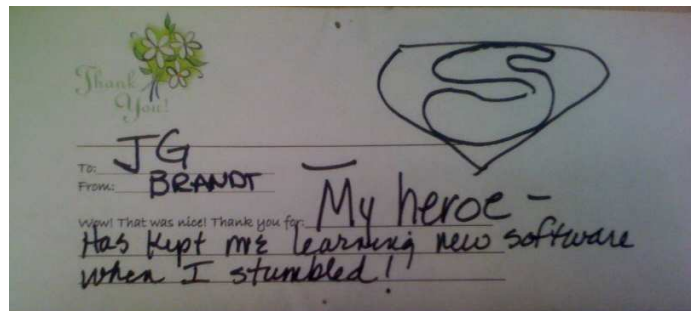 Thank
You!
S
To: JG
From: BRANDT
Wow! That was nice! Thank you for: — My heroe –
Has kept me learning new software
when I stumbled!